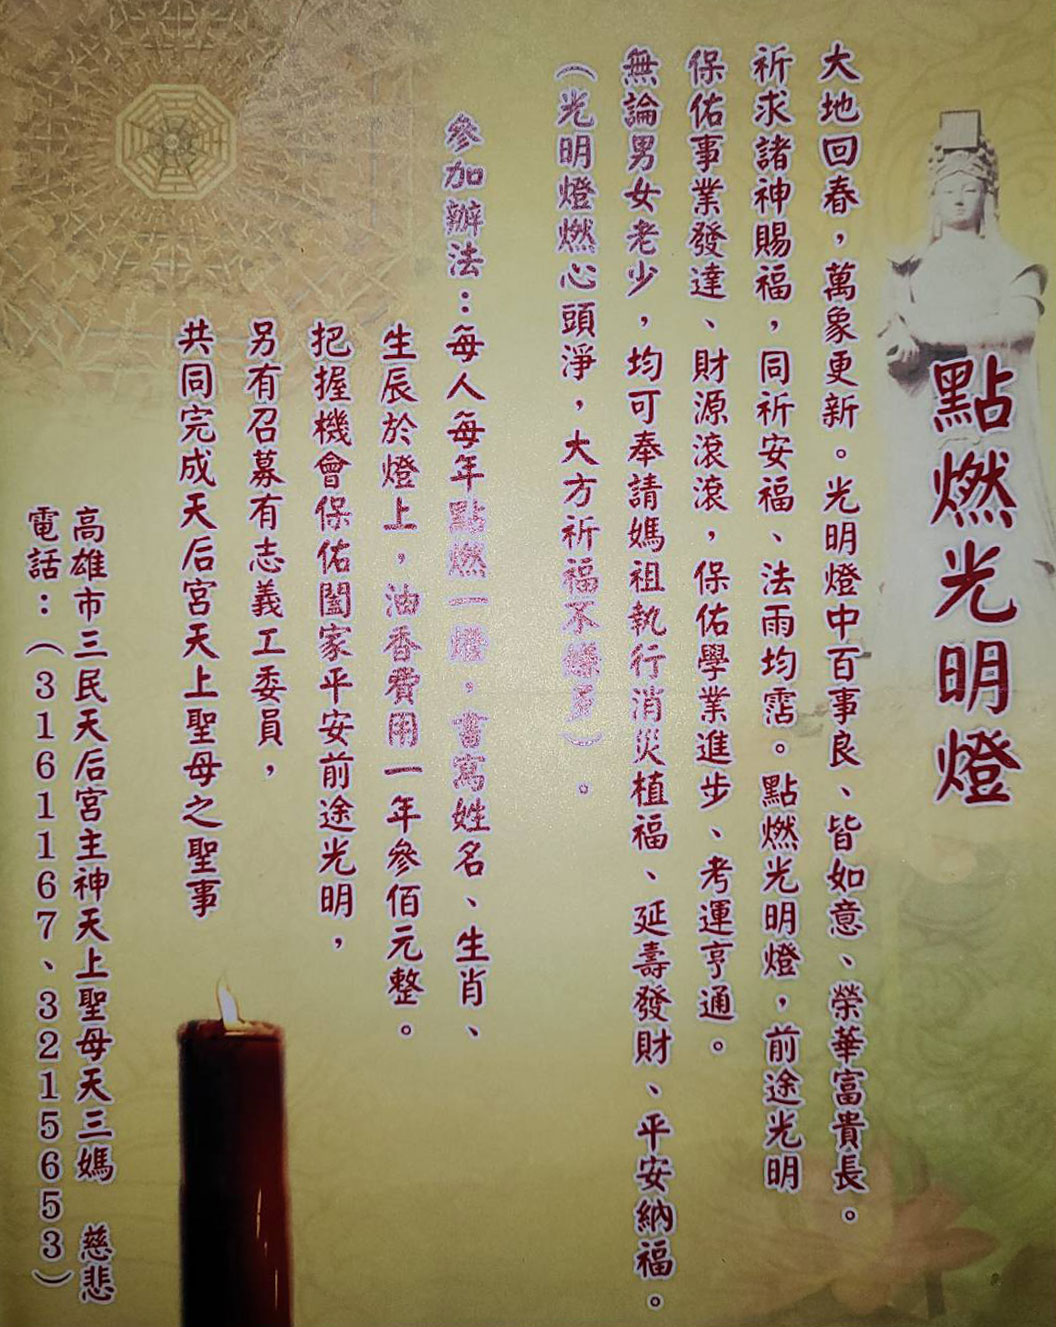 點燃光明燈
大地回春，萬象更新。光明燈中百事良、皆如意、榮華富貴長。
祈求諸神賜福，同祈安福、法雨均霑。點燃光明燈，前途光明
保佑事業發達、財源滾滾，保佑學業進步、考運亨通。
無論男女老少，均可奉請媽祖執行消災植福、延壽發財、平安納福。
（光明燈燃心頭淨，大方祈福不嫌多）。
參加辦法：每人每年點燃一燈，書寫姓名、生肖、
生辰於燈上，油香費用一年參佰元整。
把握機會保佑闔家平安前途光明，
另有召募有志義工委員，
共同完成天后宮天上聖母之聖事
高雄市三民天后宮主神天上聖母天三媽　慈悲
電話：（3161167、3215653）